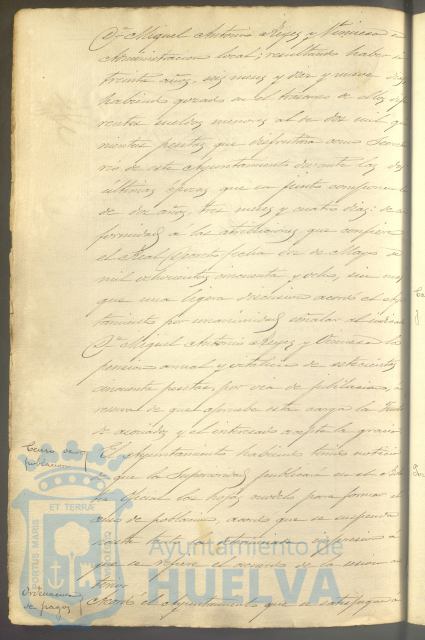 Dn Miguel Antonio Reyes y Viniesa en
Administracion local; resultando haber
treinta años, seis meses y diez y nueve dias
habiendo gozado en el trascurso de ellos
sueldos menores al de dos mil qui
nientas pesetas que disfrutara como Secreta
rio de este Ayuntamiento durante las dos
últimas épocas que en junto componen
de diez años, tres meses y cuatro dias: de con
formidad á las atribuciones que confiere
el Real Decreto fecha dos de Mayo de
mil ochocientos cincuenta y ocho, sin mas
que una ligera discusion acordó el Ayun
tamiento por unanimidad señalar al
Dn Miguel Antonio Reyes y Viniesa la
pension anual y vitalicia de setecientas
cincuenta pesetas, por via de jubilacion, á
de que apruebe esta carga la Junta
de asociados y el interesado acepte la gracia
Censo de
poblacion
El Ayuntamiento habiendo tenido noticia
de que la Superioridad publicará en el
Oficial las hojas modelo para formar el
censo de poblacion, acordó que se suspenda
hasta tanto la
que se refiere el acuerdo de la sesion an
terior
Ordenacion
de pagos
Acordó el Ayuntamiento que se satisfagan
PORTUS MARIS ET TERRAE CUSTODIA
Ayuntamiento de
HUELVA